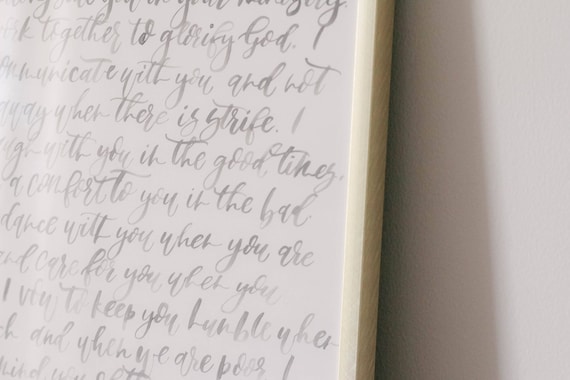 you in your ministry.
together to glorify God. I
communicate with you and not
away when there is strife. I
with you in the good times.
a comfort to you in the bad
dance with you when you are
and care for you when you
I vow to keep you humble when
and when we are poor. I